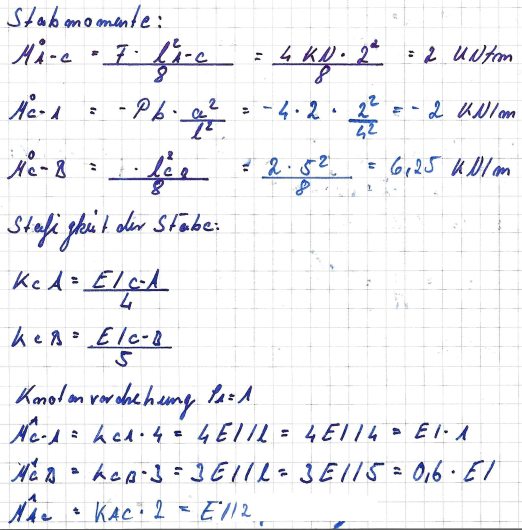 Stabmomente:
M°A-C = F · l²A-C / 8 = 4 KN · 2² / 8 = 2 KN/m
M°C-A = - Pb · a² / l² = - 4 · 2 · 2² / 4² = - 2 KN/m
M°C-B = · l²CB / 8 = 2 · 5² / 8 = 6,25 KN/m
Steifigkeit der Stäbe:
KCA = EI C-A / 4
KCB = EI C-B / 5
Knotenverdrehung = 1
M^C-A = KCA · 4 = 4EI/l = 4EI/4 = EI · 1
M^CB = KCB · 3 = 3EI/l = 3EI/5 = 0,6 · EI
M^AC = KAC · 2 = EI/2